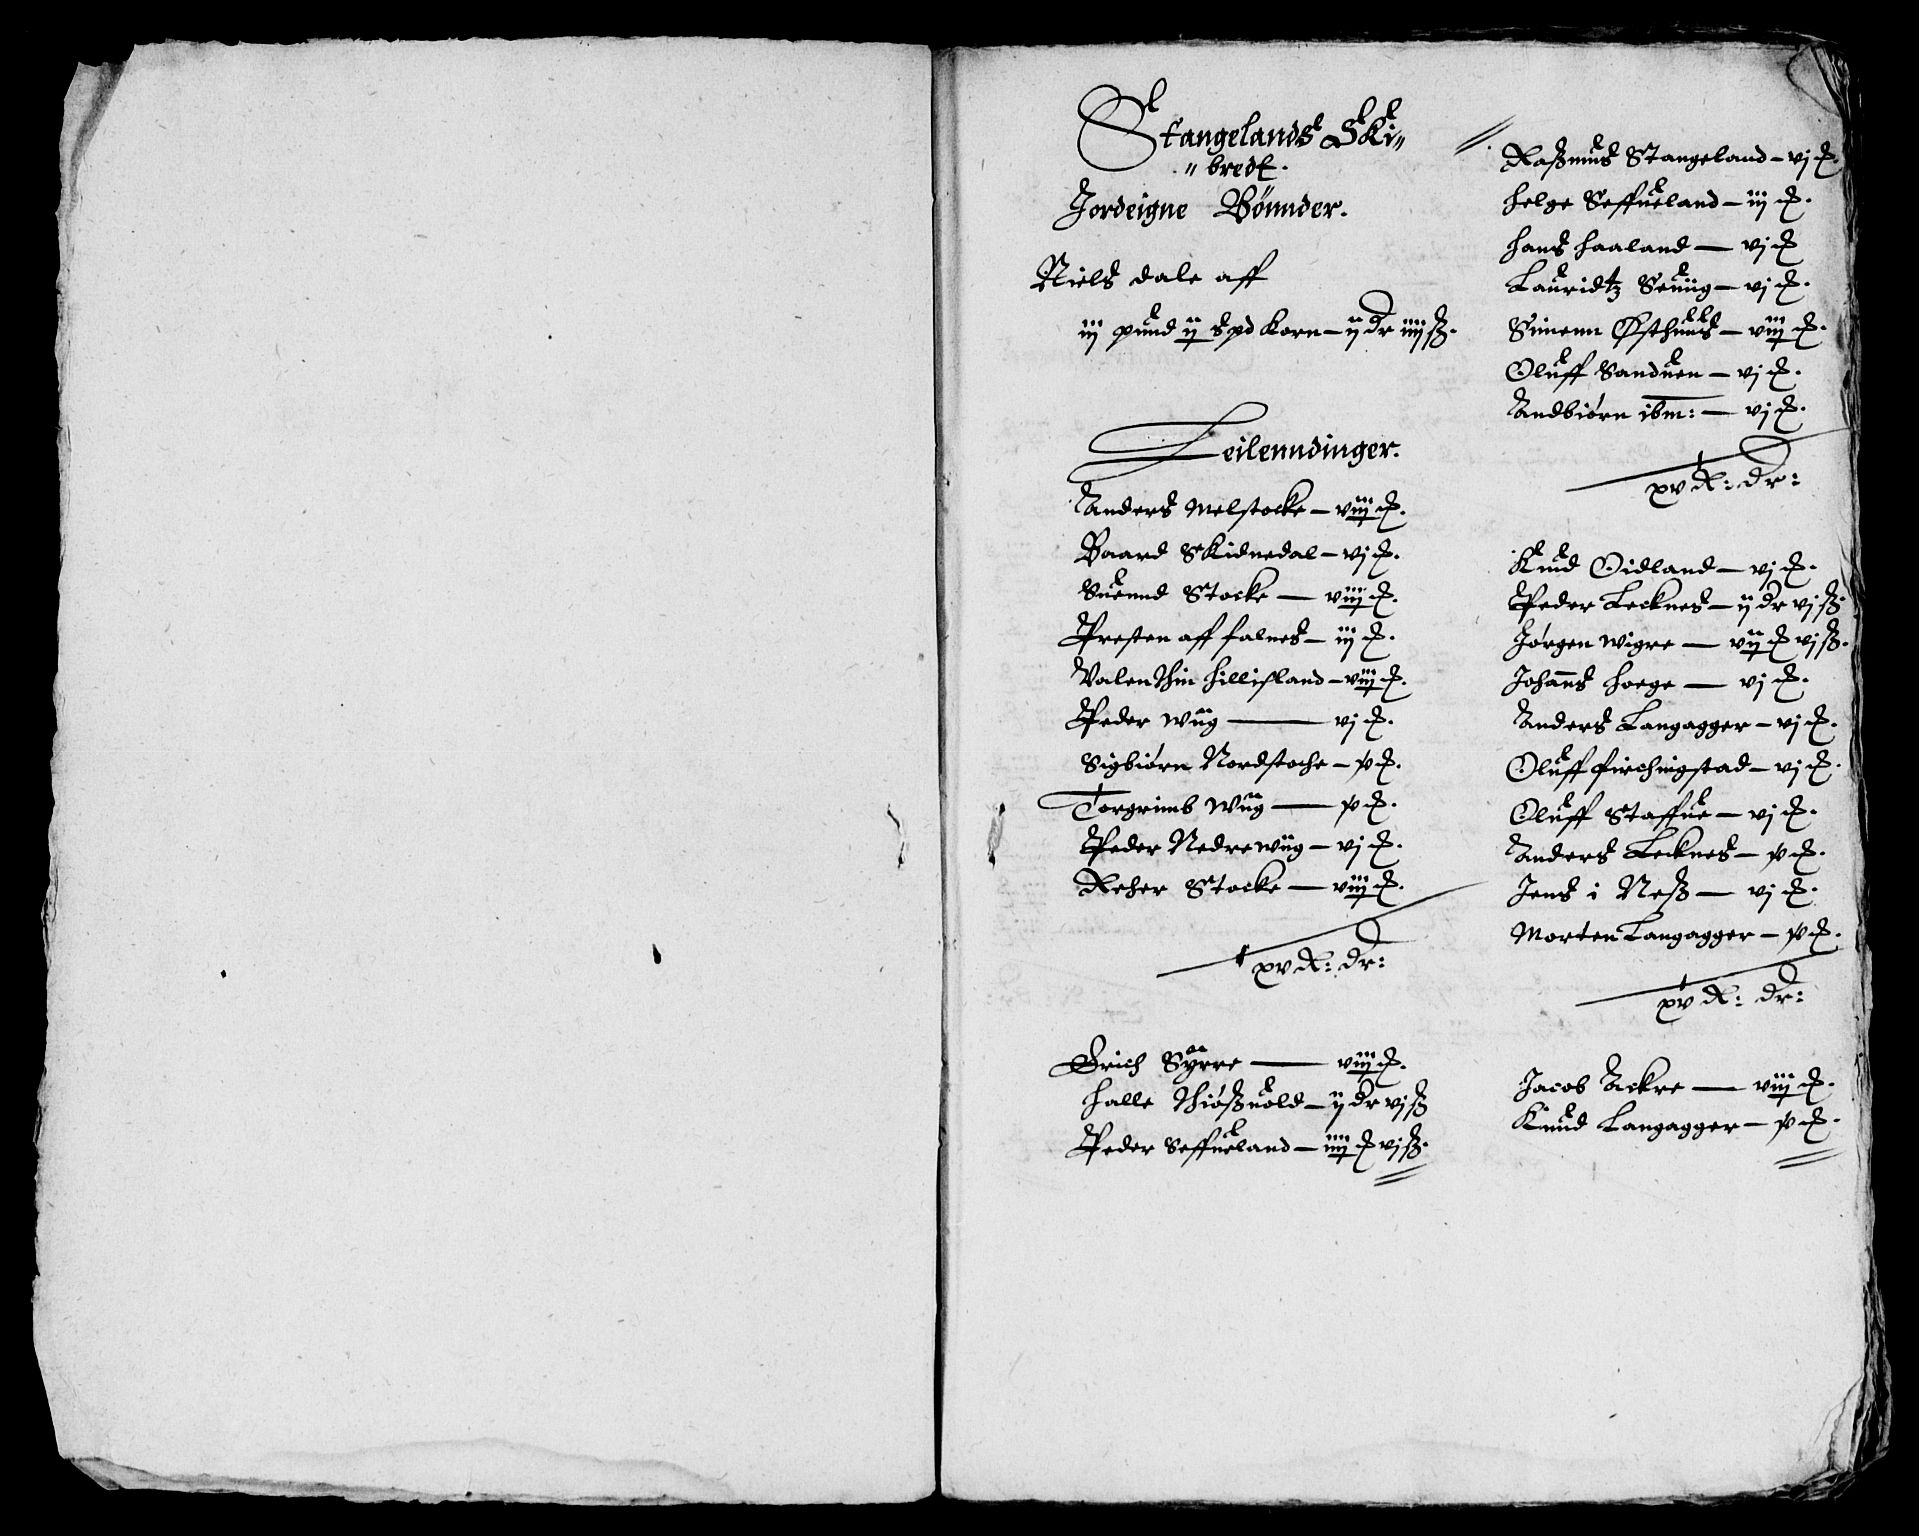 Stangelands Ski„
„ brede.
Jordeigne Bønnder.
Niels dale aff
iij pund ij spd korn – ij dr iiij ß.
Leilenndinger.
Anders Melstocke – viij ð.
Baard Skidnedal – vj ð.
Suennd Stocke — viij ð.
Presten aff falnes – iij ð.
Valenthin hillisland – viij ð.
Peder Wiig — vj ð.
Sigbiørn Nordstoche – p ð.
Torgrimb Wiig — p ð.
Peder Nedrewiig – vj ð.
Reher Stocke — viij ð.
xv R: dr:
Erich Syrre — viij ð.
halle Thiøßuold – ij dr vj ß
Peder Seffueland – iiij ð vj ß.
Raßmus Stangeland – vj ð.
helge Seffueland – iij ð.
hans haaland — vj ð
Lauridtz Seuiig – vj ð.
Simenn Østhuus – viij ð.
Oluff Sanduen – vj ð.
Andbiørn ibm: — vj ð.
xv R: dr:
Knud Oidland – vj ð.
Peder Lecknes – ij dr vj ß
Jørgen Wigre — vij ð vj ß.
Johans hoege — vj ð.
Anders Langagger – vj ð.
Oluff firchingstad – vj ð.
Oluff Staffue – vj ð.
Anders Lecknes – p ð.
Jens i Neß — vj ð.
Morten Langagger – p ð.
xv R: dr:
Jacob Ackre — viij ð.
Knud Langagger – p ð.